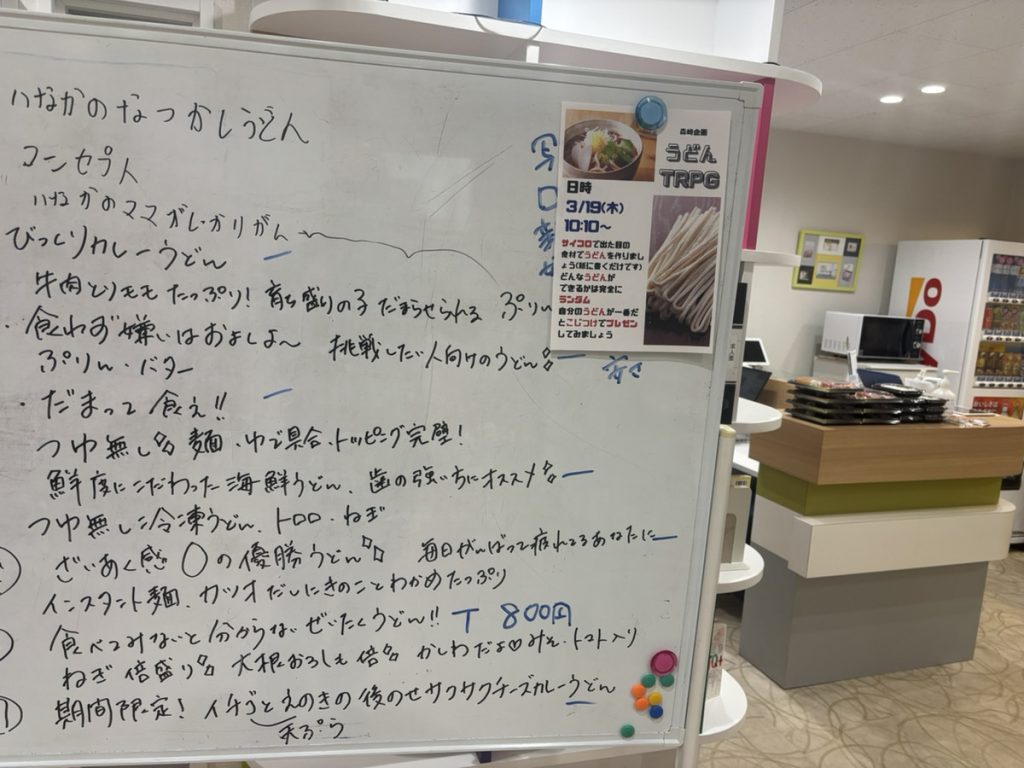 いなかのなつかしうどん
コンセプト
いなかのママがしかりがん
びっくりカレーうどん
牛肉とりモモたっぷり! 育ち盛りの子だまらせられる ぷりん
・食わず嫌いはおよしよ〜 挑戦したい人向けのうどん
ぷりん・バター
・だまって食え!!
つゆ無し 麺・ゆで具合・トッピング完璧!
鮮度にこだわった海鮮うどん、歯の強い方にオススメ
つゆ無し 冷凍うどん、トロロ・ねぎ
ざいあく感〇の優勝うどん 毎日がんばって疲れてるあなたに
インスタント麺、カツオだしにきのことわかめたっぷり
食べてみないと分からないぜいたくうどん!! 800円
ねぎ倍盛り 大根おろしも倍 かしわだよ♡みそ・トマト入り
期間限定! イチゴとえのきの後のせサクサクチーズカレーうどん
天ぷら
森崎企画
うどん
TRPG
日時
3/19(木)
10:10〜
サイコロで出た目の
食材でうどんを作りましょう(紙に書くだけです)
どんなうどんが
できるかは完全に
ランダム
自分のうどんが一番だ
とこじつけてプレゼン
してみましょう